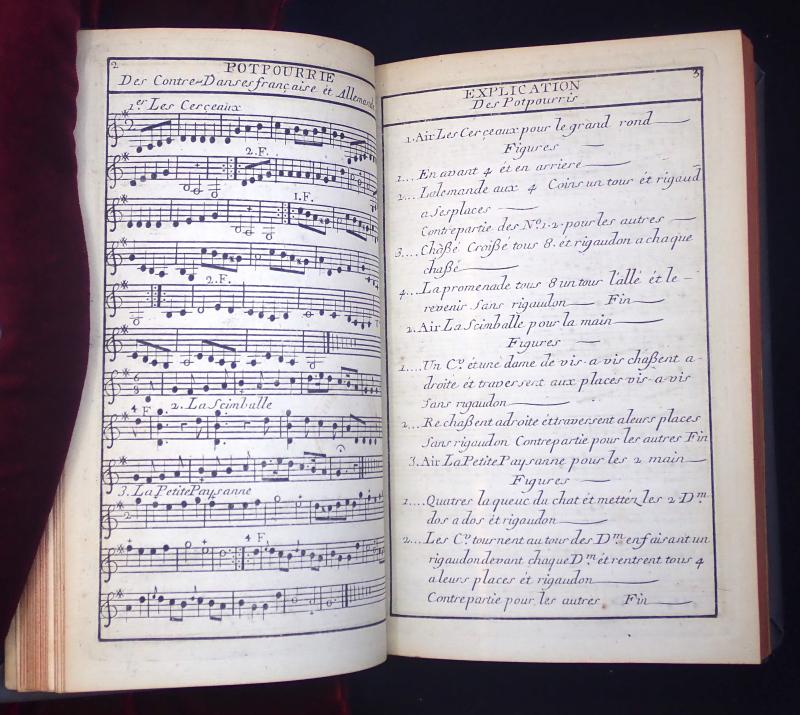 2
POTPOURRIE
Des Contre-Danses française ét Allemande
1.er Les Cerçeaux
2. F.
1. F.
2. F.
4 F.
2. La Scimballe
3. La Petite Paysanne
4 F.
3
EXPLICATION
Des Potpourris
1. Air Les Cerçeaux pour le grand rond
Figures
1... En avant 4 ét en arriere
2... Lalemande aux 4 Coins un tour ét rigaud
a Ses places
Contrepartie des No. 1-2-pour les autres
3... Chaßé Croißé tous 8. ét rigaudon a chaque
chaßé
4... La promenade tous 8 un tour l'allé ét le -
revenir Sans rigaudon Fin
2. Air La Scimballe pour la main
Figures
1... Un C.er ét une dame de vis-a-vis chaßent a-
droite ét traversent aux places vis-a-vis
Sans rigaudon
2... Re chaßent adroite ét traversent a leurs places
Sans rigaudon Contrepartie pour les autres Fin
3. Air La Petite Paysanne pour les 2 main
Figures
1... Quatres la queuc du chat ét mettéz les 2 D.m
dos a dos ét rigaudon
2... Les C.er tournent au tour des D.m en faisant un
rigaudon devant chaque D.m ét rentrent tous 4
a leurs places ét rigaudon
Contrepartie pour les autres Fin